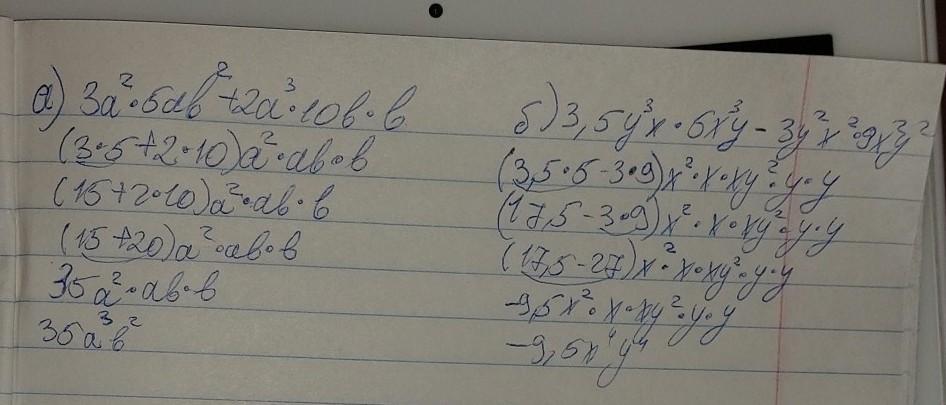 а) 3a²·5ab²+2a³·10b·b
(3·5+2·10)a²·ab·b
(15+2·10)a²·ab·b
(15+20)a²·ab·b
35a²·ab·b
35a³b²
б) 3,5y³x·5x³y-3y²x²·9x²y²
(3,5·5-3·9)x²·x·xy²·y·y
(17,5-3·9)x²·x·xy²·y·y
(17,5-27)x²·x·xy²·y·y
-9,5x²·x·xy²·y·y
-9,5x⁴y⁴